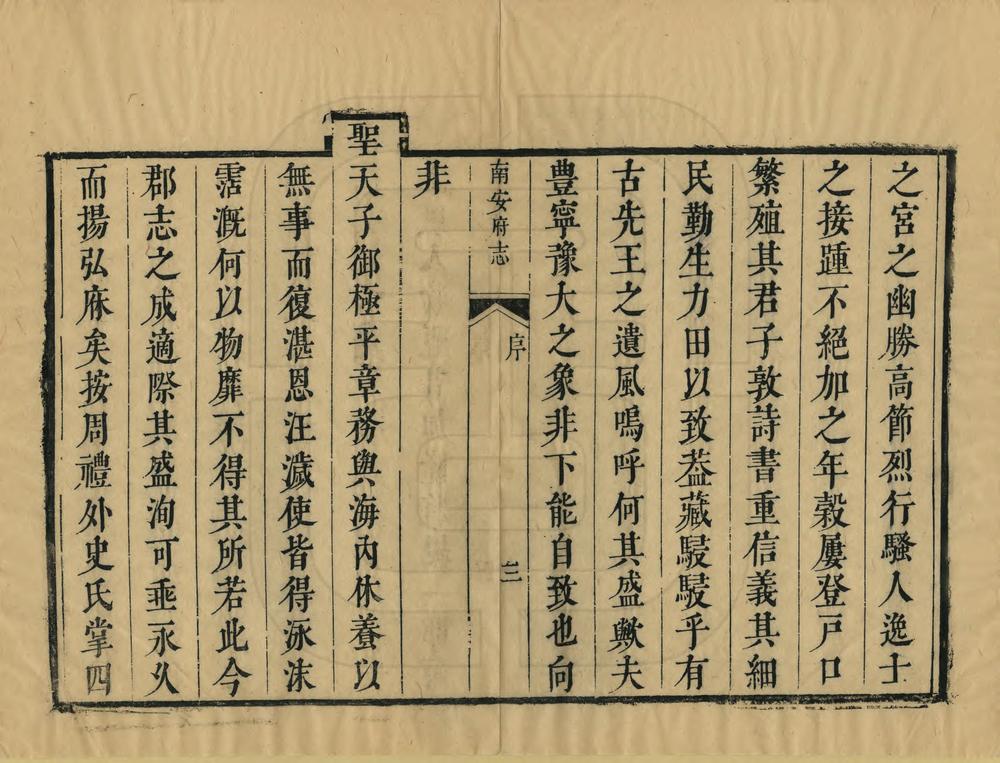 之宮之幽勝高節烈行騷人逸士
之接踵不絕加之年穀屢登戸口
繁殖其君子敦詩書重信義其細
民勤生力田以致葢藏駸駸乎有
古先王之遺風嗚呼何其盛歟夫
豊寧豫大之象非下能自致也向
非
南安府志
序
三
聖天子御極平章務與海內休養以
無事而復湛恩汪濊使皆得泳沫
霑溉何以物靡不得其所若此今
郡志之成適際其盛洵可垂永久
而揚弘庥矣按周禮外史氏掌四